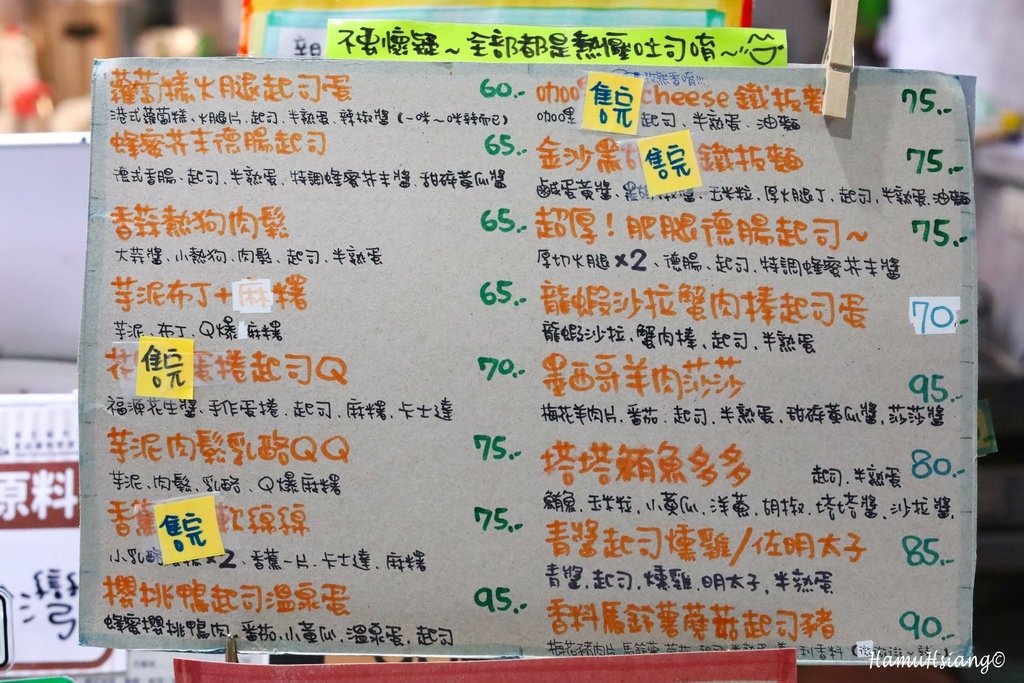 不要懷疑～全部都是熱壓吐司唷～
蘿蔔糕火腿起司蛋 60.-
港式蘿蔔糕、火腿片、起司、半熟蛋、辣椒醬(一咪～咪辣而已)
蜂蜜芥末德腸起司 65.-
德式香腸、起司、半熟蛋、特調蜂蜜芥末醬、甜碎黃瓜醬
香蒜熱狗肉鬆 65.-
大蒜醬、小熱狗、肉鬆、起司、半熟蛋
芋泥布丁+麻糬 65.-
芋泥、布丁、Q爆麻糬
花 售完 蛋捲起司Q 70.-
福源花生醬、手作蛋捲、起司、麻糬、卡士達
芋泥肉鬆乳酪QQ 75.-
芋泥、肉鬆、乳酪、Q爆麻糬
香蕉 售完 軟綿綿 75.-
小乳酪 x2、香蕉一片、卡士達、麻糬
櫻桃鴨起司溫泉蛋 95.-
蜂蜜櫻桃鴨肉、番茄、小黃瓜、溫泉蛋、起司
售完 cheese鐵板麵 75.-
咖哩 起司、半熟蛋、油麵
金沙黑 售完 鐵板麵 75.-
鹹蛋黃醬、黑胡椒醬、玉米粒、厚火腿丁、起司、半熟蛋、油麵
超厚！肥腿德腸起司～ 75.-
厚切火腿x2、德腸、起司、特調蜂蜜芥末醬
龍蝦沙拉蟹肉棒起司蛋 70.-
龍蝦沙拉、蟹肉棒、起司、半熟蛋
墨西哥羊肉莎莎 95.-
梅花羊肉片、番茄、起司、半熟蛋、甜碎黃瓜醬、莎莎醬
塔塔鮪魚多多 起司、半熟蛋 80.-
鮪魚、玉米粒、小黃瓜、洋蔥、胡椒、塔塔醬、沙拉醬、
青醬起司燻雞/佐明太子 85.-
青醬、起司、燻雞、明太子、半熟蛋
香料馬鈴薯蘑菇起司豬 90.-
梅花豬肉片、馬鈴薯、蘑菇、起司、半熟蛋
原料
灣
HamuHsiang©